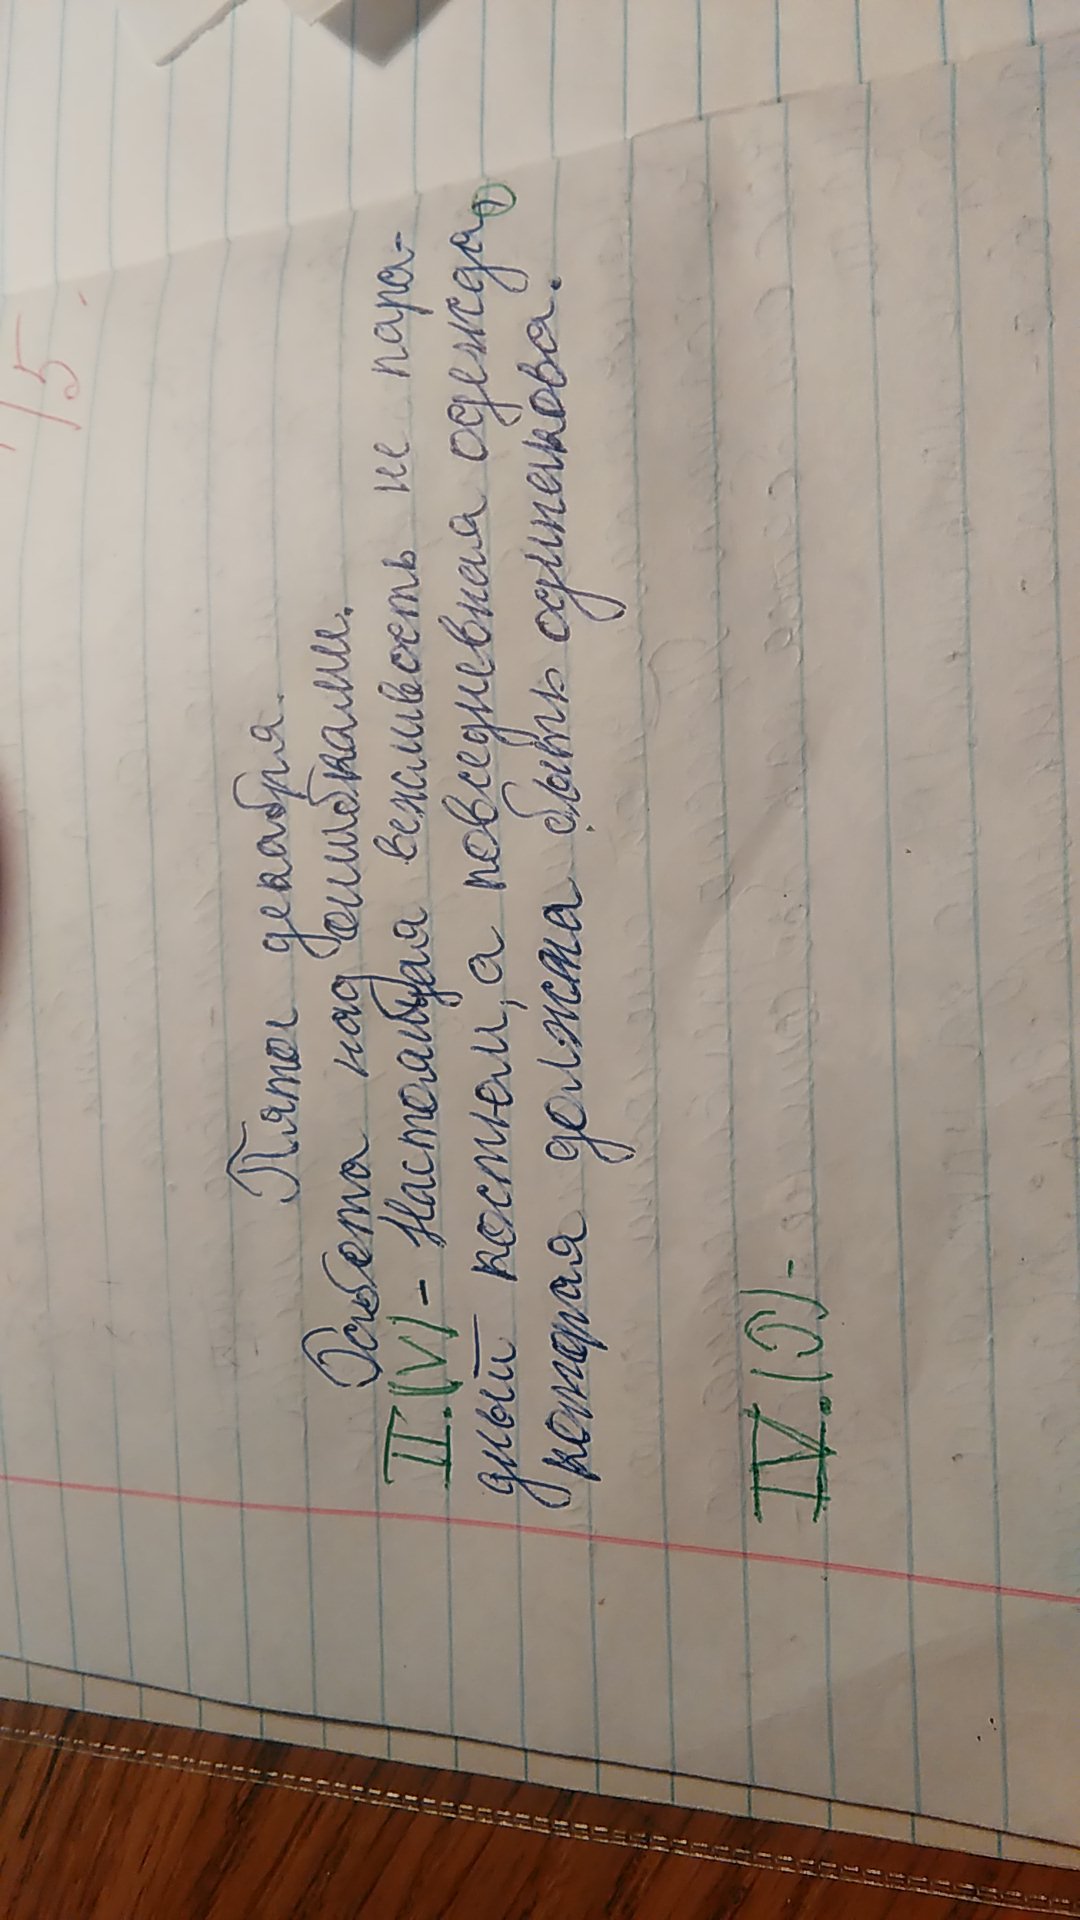 /5
Пятое декабря.
Работа над ошибками.
II.(V) - Настоящая вежливость не пара-
дный костюм, а повседневная одежда,
которая должна быть одинакова.
IV.(О) -